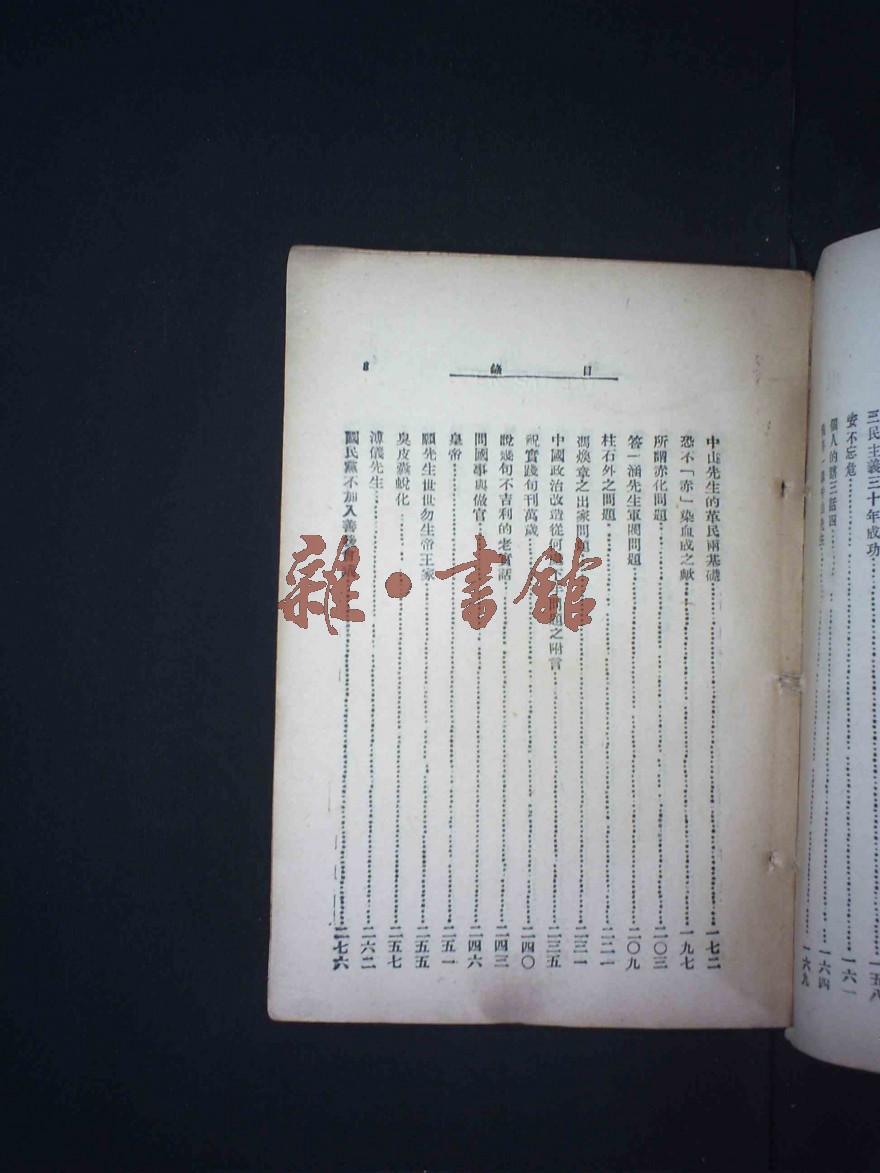 三民主義三十年成功 一五八
安不忘危 一六一
個人的話三話四 一六四
一六九
目錄
8
中山先生的革民兩基礎 一七二
恐不「赤」染血成之歟 一九七
所謂赤化問題 二〇三
答一涵先生軍閥問題 二〇九
柱石外之問題 二二一
馮煥章之出家問題 二三一
中國政治改造從何 問題之附言 二三五
祝實踐旬刊萬歲 二四〇
說幾句不吉利的老實話 二四三
問國事與做官 二四六
皇帝 二五一
願先生世世勿生帝王家 二五五
臭皮囊蛻化 二五七
溥儀先生 二六二
國民黨不加入善後會議 二七六
雜·書館